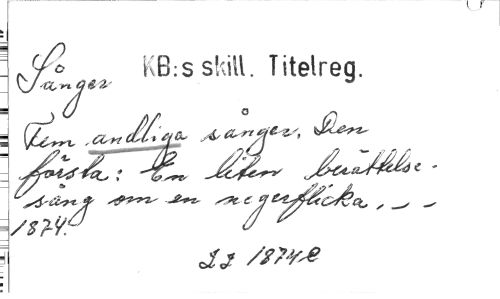 KB:s skill. Titelreg.
Sånger
Fem andliga sånger. Den
första: En liten berättelse-
sång om en negerflicka. _ _
1874.
1874